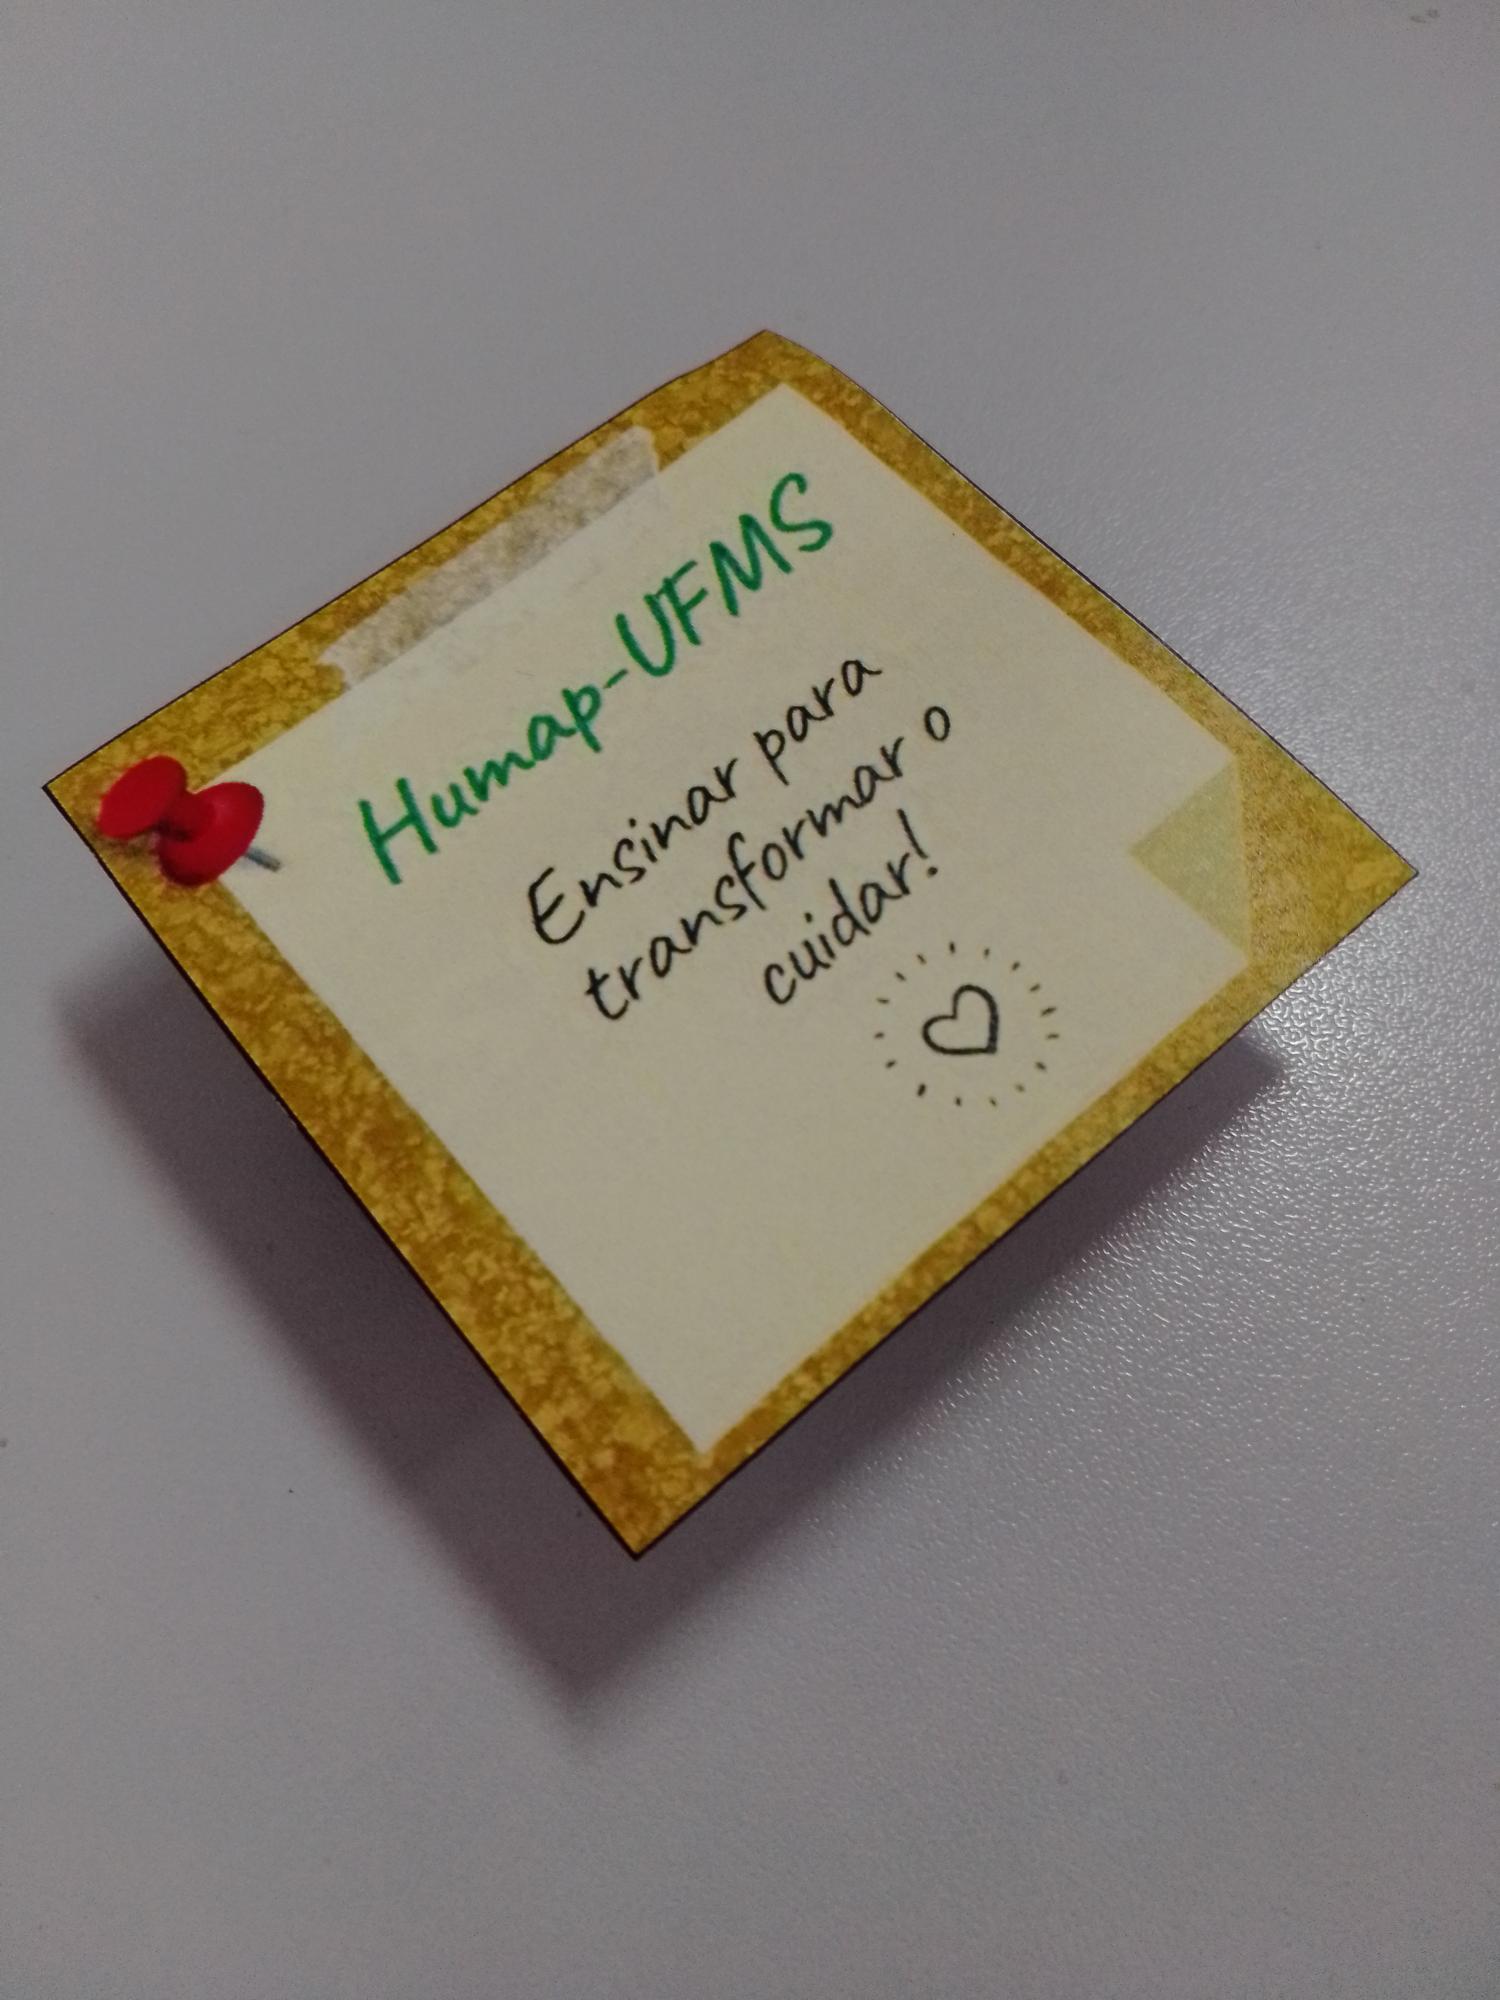 Humap-UFMS
Ensinar para
transformar o
cuidar!